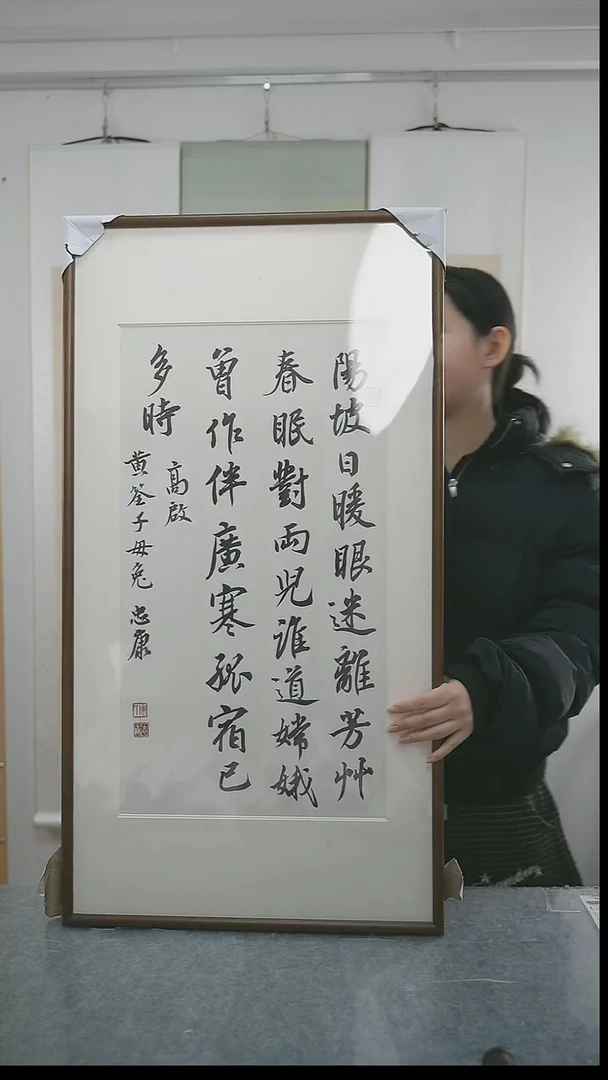 陽坡日暖眼迷離芳艸
春眠對兩兒誰道嫦娥
曾作伴廣寒孤宿已
多時
高啟
黄荃子母兔 忠康